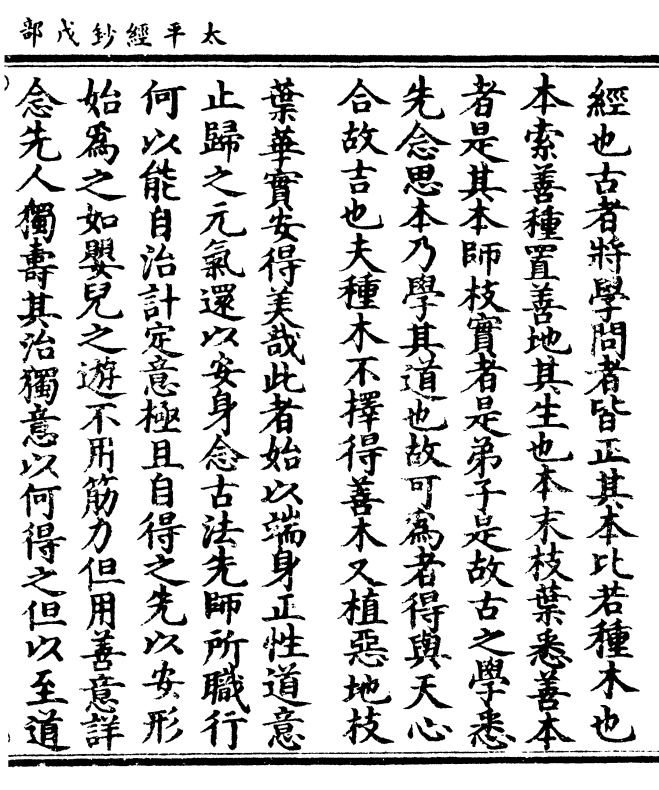 太平經鈔戊部
經也古者將學問者皆正其本比若種木也
本索善種置善地其生也本末枝葉悉善本
者是其本師枝實者是弟子是故古之學悉
先念思本乃學其道也故可為者得與天心
合故吉也夫種木不擇得善木又植惡地枝
葉華實安得美哉此者始以端身正性道意
止歸之元氣還以安身念古法先師所職行
何以能自治計定意極且自得之先以安形
始為之如嬰兒之遊不用筋力但用善意詳
念先人獨壽其治獨意以何得之但以至道